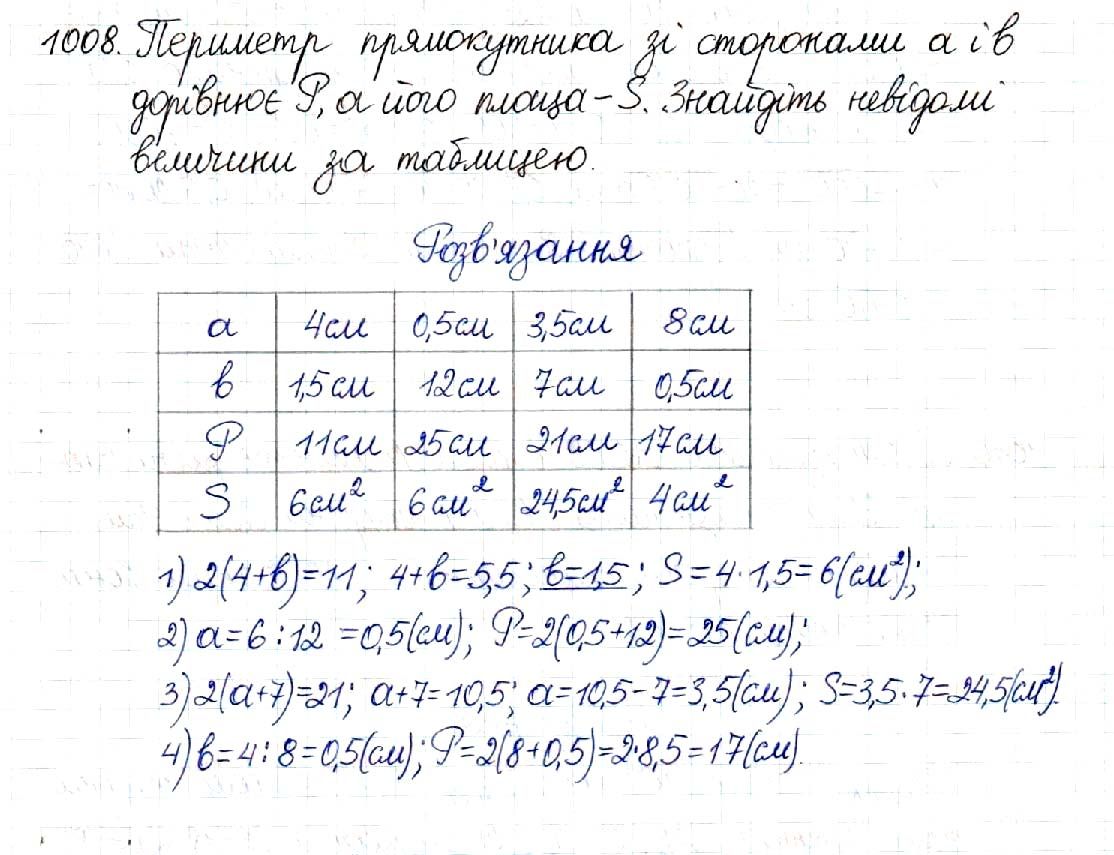 1008. Периметр прямокутника зі сторонами a і в
дорівнює P, а його площа – S. Знайдіть невідомі
величини за таблицею.
Розв'язання
a 4см 0,5см 3,5см 8см
в 1,5см 12см 7см 0,5см
P 11см 25см 21см 17см
S 6см² 6см² 24,5см² 4см²
1) 2(4+в)=11; 4+в=5,5; в=1,5; S=4·1,5=6(см²);
2) a=6:12=0,5(см); P=2(0,5+12)=25(см);
3) 2(a+7)=21; a+7=10,5; a=10,5-7=3,5(см); S=3,5·7=24,5(см²).
4) в=4:8=0,5(см); P=2(8+0,5)=2·8,5=17(см).